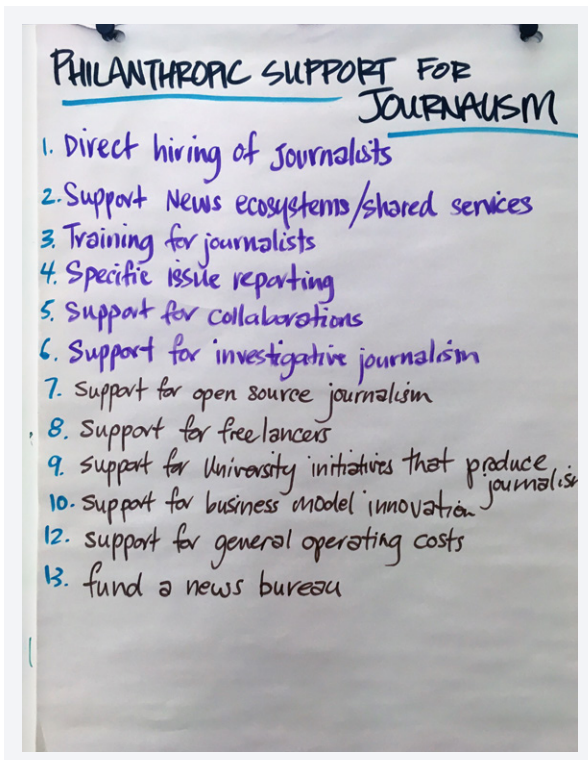 PHILANTHROPIC SUPPORT FOR
JOURNALISM
1. Direct hiring of Journalists
2. Support News ecosystems/shared services
3. Training for journalists
4. Specific issue reporting
5. Support for collaborations
6. Support for investigative journalism
7. Support for open source journalism
8. Support for freelancers
9. Support for University initiatives that produce
journalism
10. Support for business model innovation
12. Support for general operating costs
13. fund a news bureau